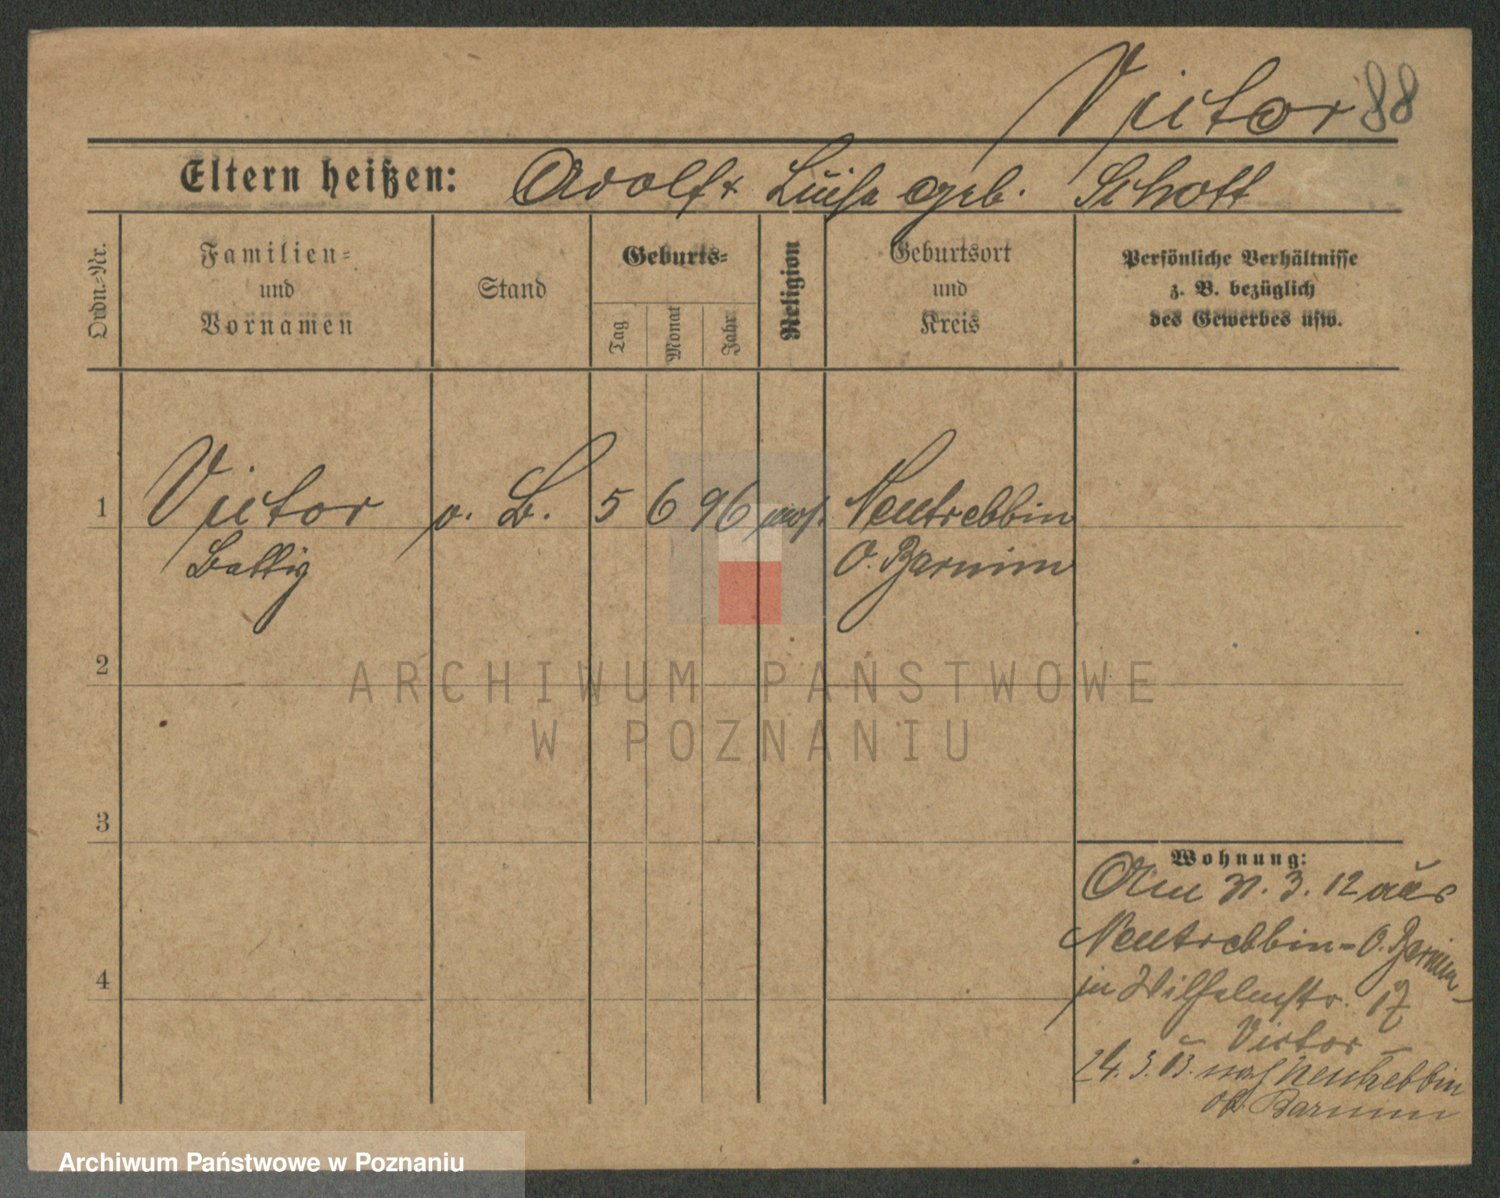 Victor 88
Eltern heißen: Adolf + Luise geb. Schott
Ordn.-Nr.
Familien=
und
Vornamen
Stand
Geburts=
Tag
Monat
Jahr
Religion
Geburtsort
und
Kreis
Persönliche Verhältnisse
z. B. bezüglich
des Gewerbes usw.
1 Victor o. B. 5 6 96 mos. Neutrebbin
O. Barnim
2
3
4
Wohnung:
Am 31. 3. 12 aus
Neutrebbin - O. Barnim -
in Wilhelmstr. 17
- Victor -
24. 3. 13. nach Neutrebbin
ob. Barnim
ARCHIWUM PAŃSTWOWE
W POZNANIU
Archiwum Państwowe w Poznaniu